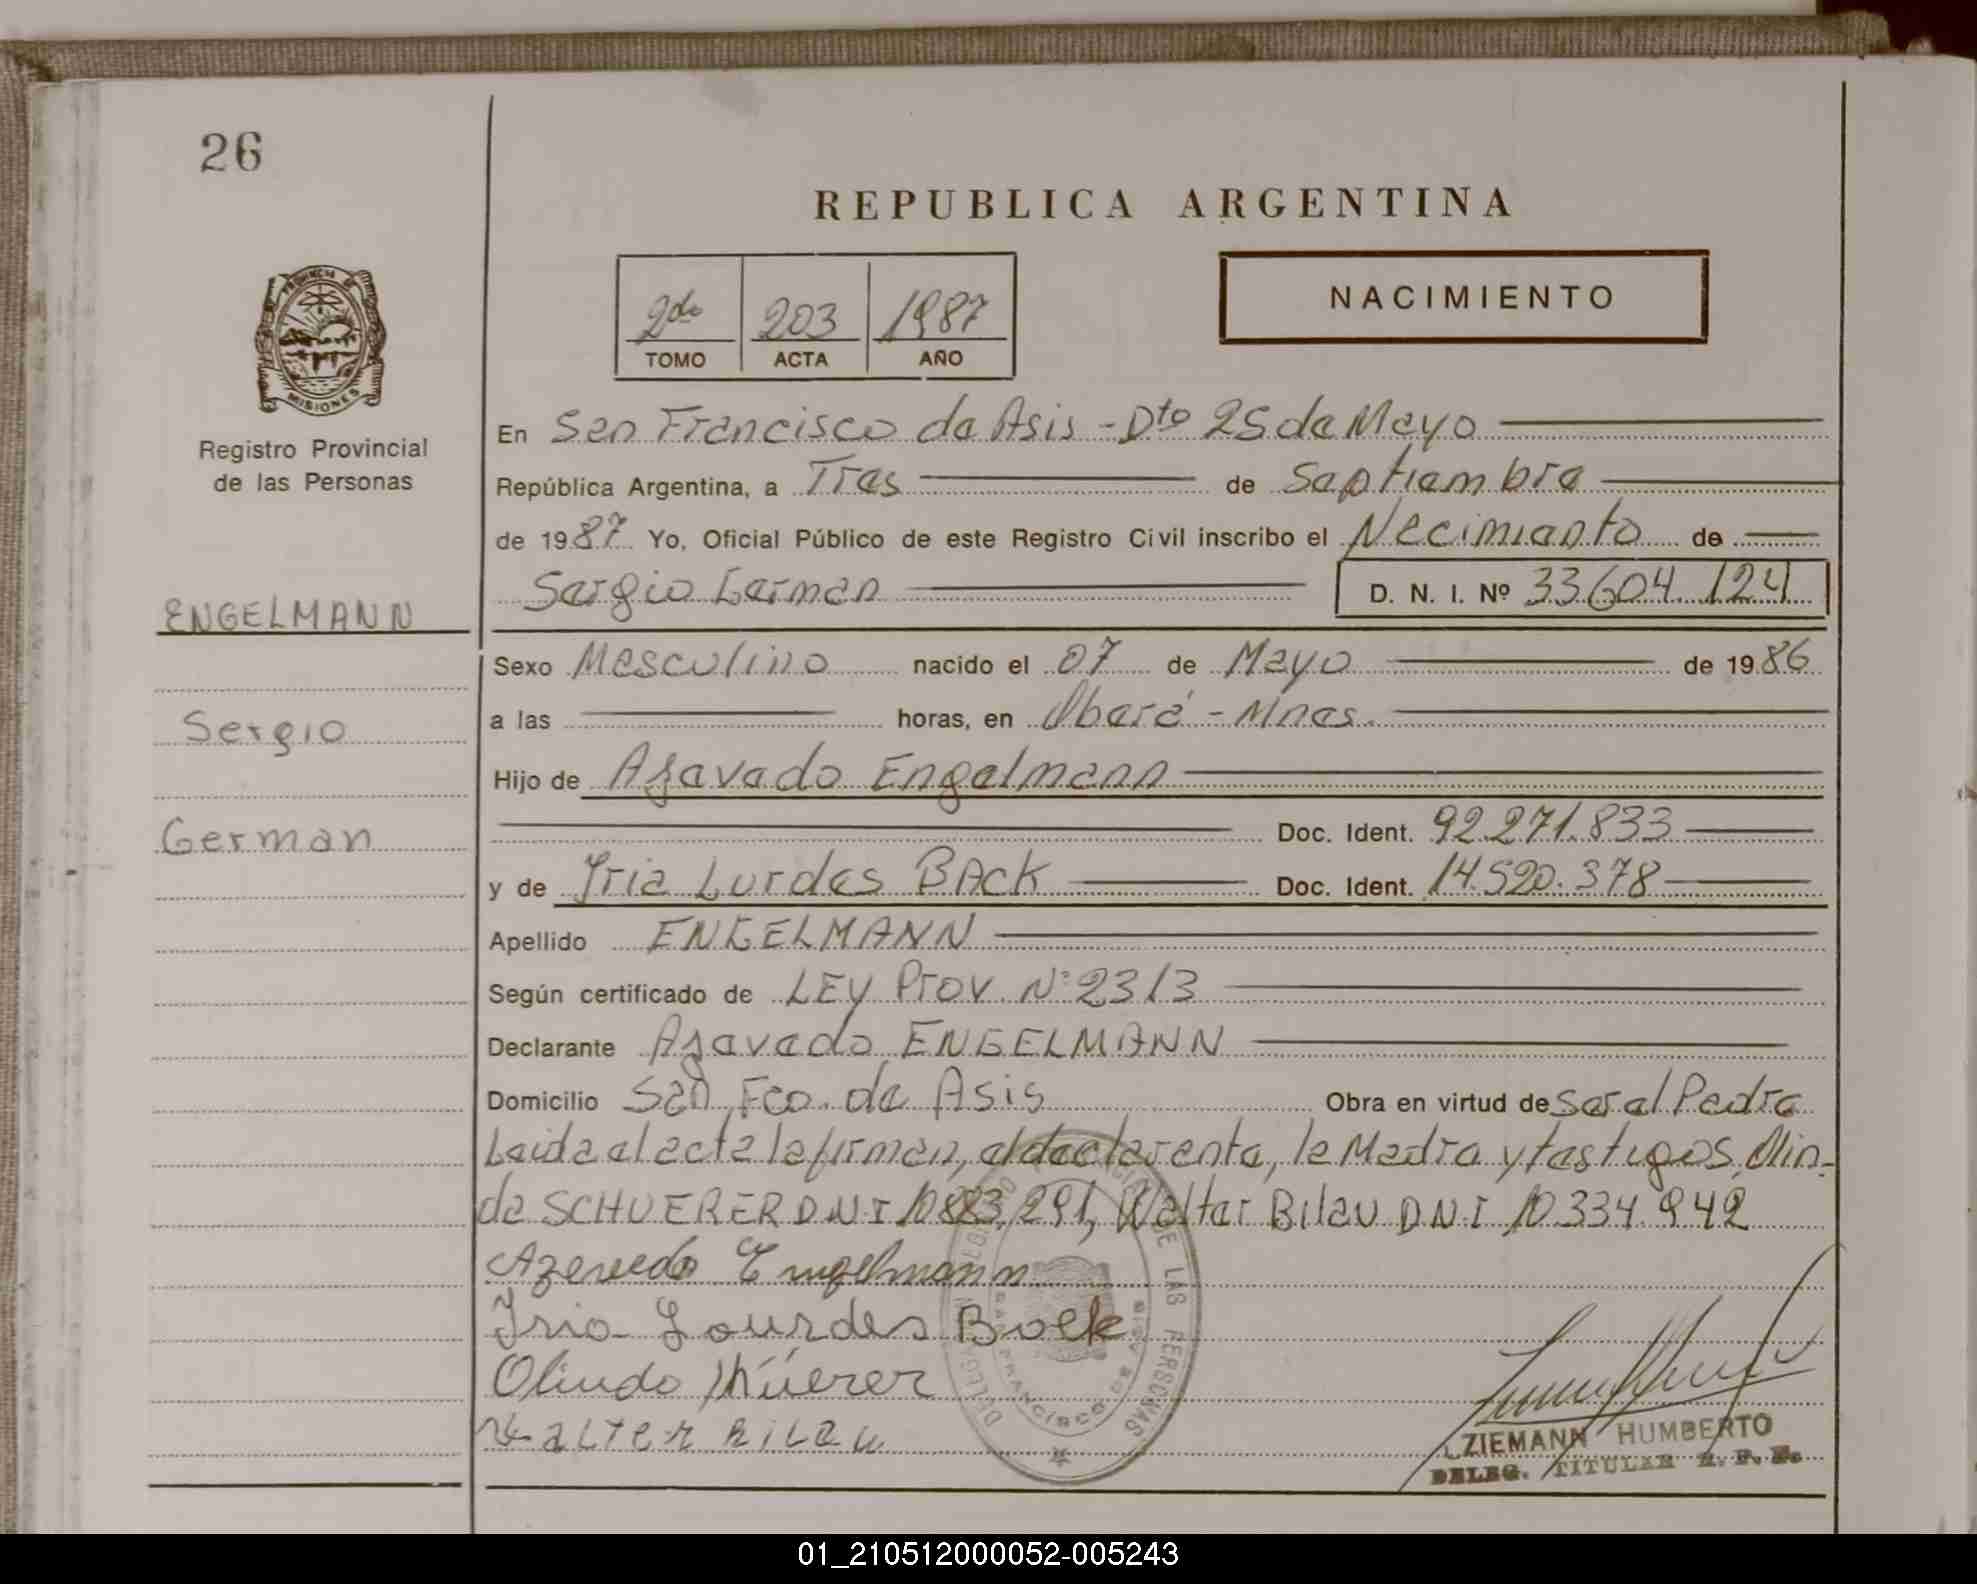 26
REPUBLICA ARGENTINA
PROVINCIA DE
MISIONES
Registro Provincial
de las Personas
2do 203 1987
TOMO ACTA AÑO
NACIMIENTO
En San Francisco de Asis - Dto 25 de Mayo
República Argentina, a Tres de Septiembre
de 1987 Yo, Oficial Público de este Registro Civil inscribo el Nacimiento de
Sergio German D. N. I. Nº 33.604.124
ENGELMANN
Sergio
German
Sexo Masculino nacido el 07 de Mayo de 1986
a las horas, en Oberá - Mnes.
Hijo de Azavedo Engelmann
Doc. Ident. 92.271.833
y de Iria Lurdes BAck Doc. Ident. 14.520.378
Apellido ENGELMANN
Según certificado de LEy Prov. Nº 2313
Declarante Azavedo ENGELMANN
Domicilio San Fco. de Asis Obra en virtud de ser el Padre
Leida el acta la firman, el declarante, la Madre y testigos, Olin-
do SCHUERER DNI 10.883.291, Walter Bilau DNI 10.334.942
Azevedo Engelmann
Iria Lourdes Back
Olindo
Walter Bilau
DE LAS PERSONAS
SAN FRANCISCO DE ASIS
ZIEMANN HUMBERTO
DELEG. TITULAR R. P. P.
01_210512000052-005243